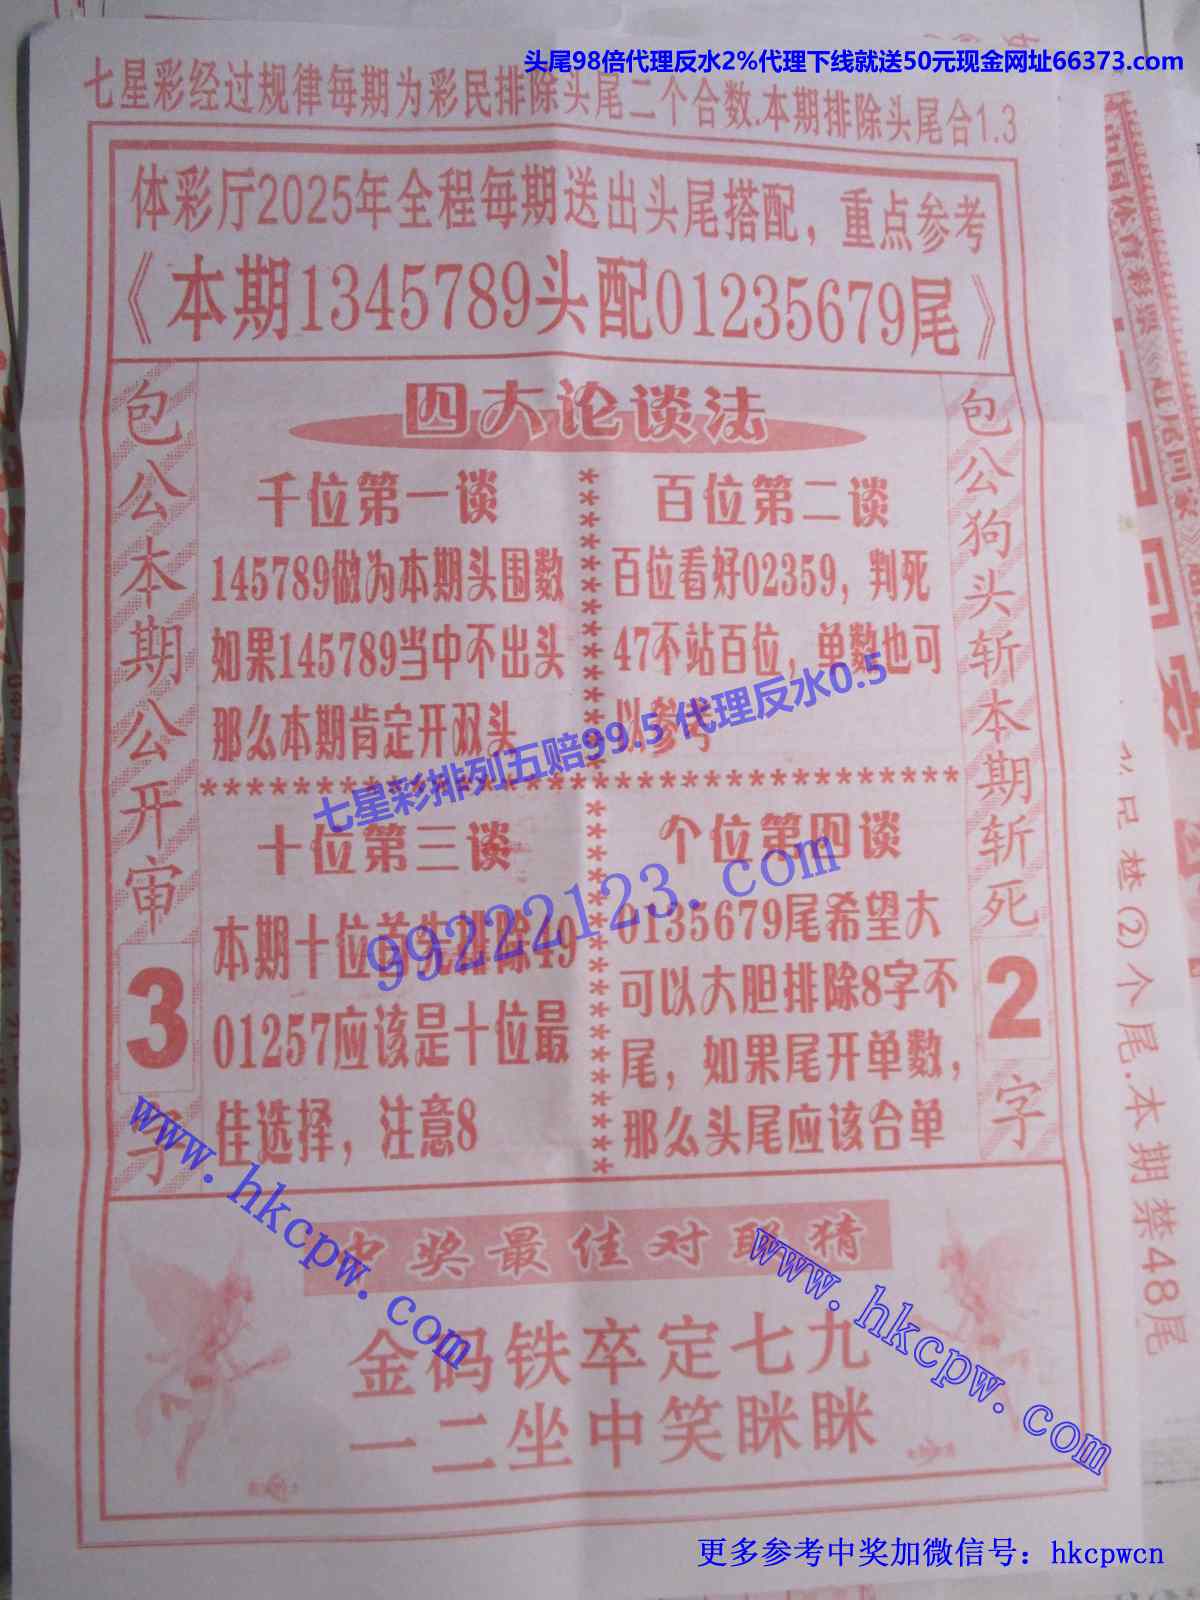 头尾98倍代理反水2%代理下线就送50元现金网址66373.com
七星彩经过规律每期为彩民排除头尾二个合数.本期排除头尾合1.3
体彩厅2025年全程每期送出头尾搭配，重点参考
《本期1345789头配01235679尾》
四大论谈法
包公本期公开审
3
字
千位第一谈
145789做为本期头围数
如果145789当中不出头
那么本期肯定开双头
百位第二谈
百位看好02359，判死
47不站百位，单数也可
以参考
十位第三谈
本期十位首先排除49
01257应该是十位最
佳选择，注意8
个位第四谈
0135679尾希望大
可以大胆排除8字不
尾，如果尾开单数，
那么头尾应该合单
包公狗头斩本期斩死
2
字
七星彩排列五赔99.5 代理反水0.5
99222123.com
中奖最佳对联猜
金码铁卒定七九
一二坐中笑眯眯
www.hkcpw.com
www.hkcpw.com
中国体育彩票
记禁②个尾.本期禁48尾
更多参考中奖加微信号：hkcpwcn